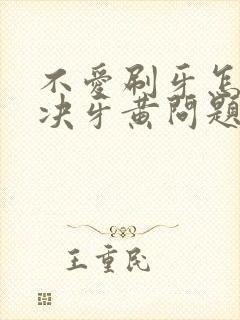 不爱刷牙怎
决牙黄问题
王重民